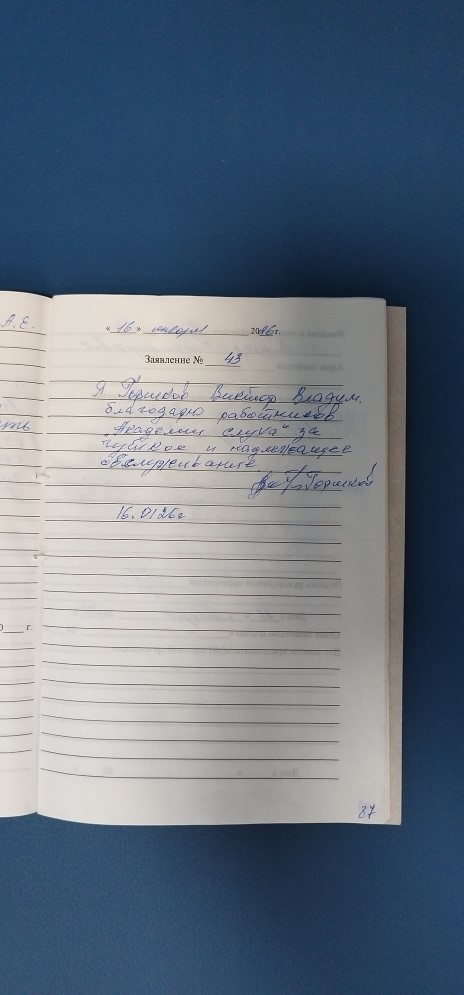 А.Е.
ть
0 г.
« 16 » января 2026 г.
Заявление № 43
Я Горшков Виктор Владим.
благодарю работников
"Академии слуха" за
чуткое и надлежащее
обслуживание
Горшков
16.01.26г
87